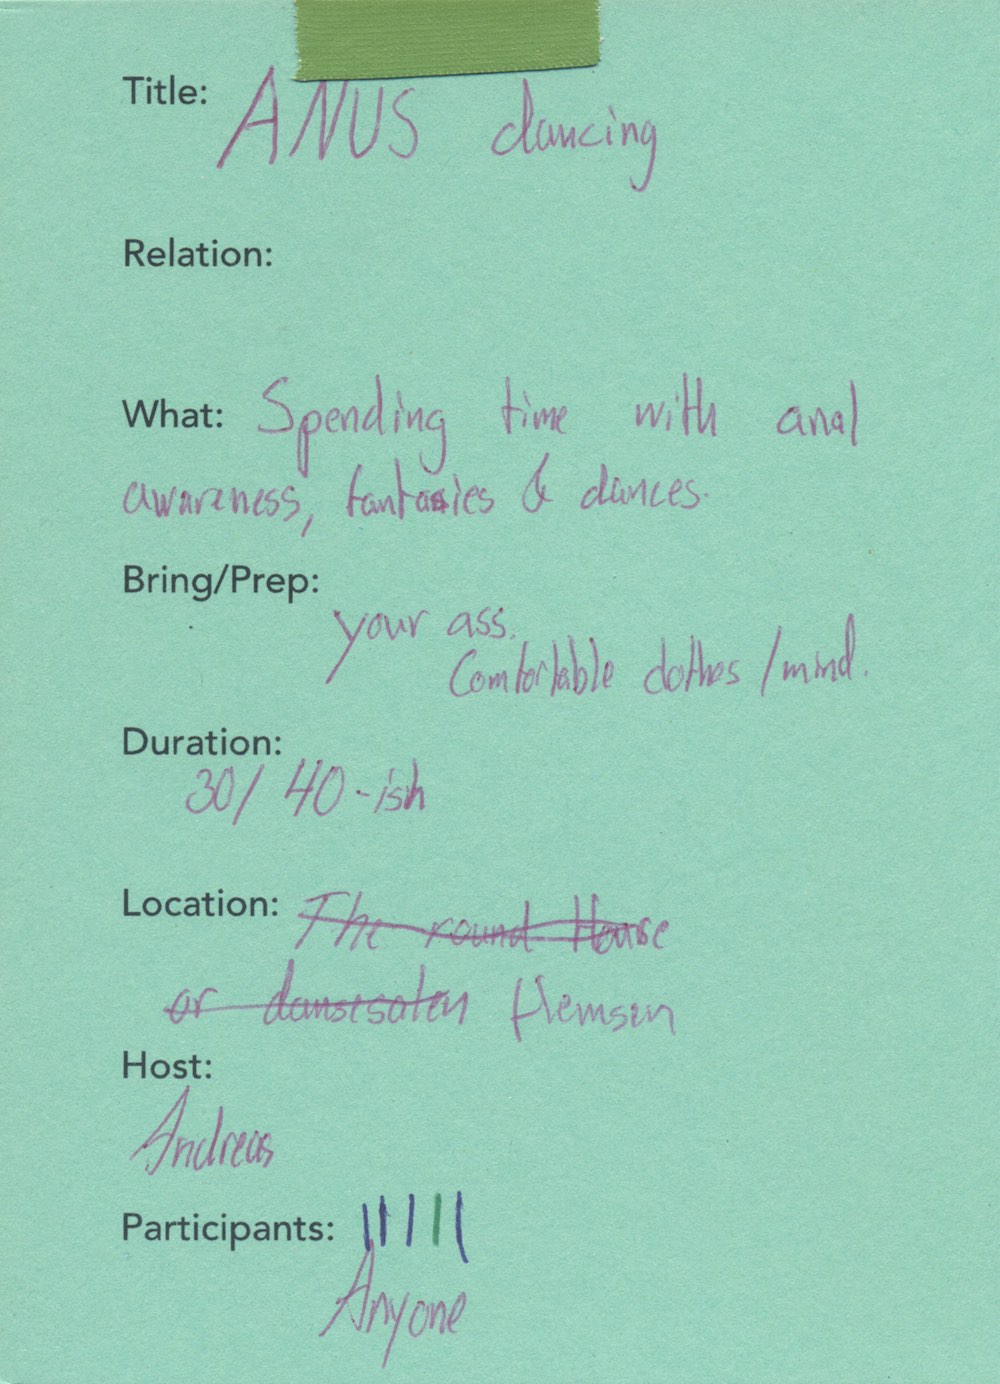 Title: ANUS dancing
Relation:
What: Spending time with anal
awareness, fantasies & dances.
Bring/Prep:
your ass.
Comfortable clothes/mind.
Duration:
30/40-ish
Location: The round House
or dansesalen Hemsen
Host:
Andreas
Participants:
Anyone